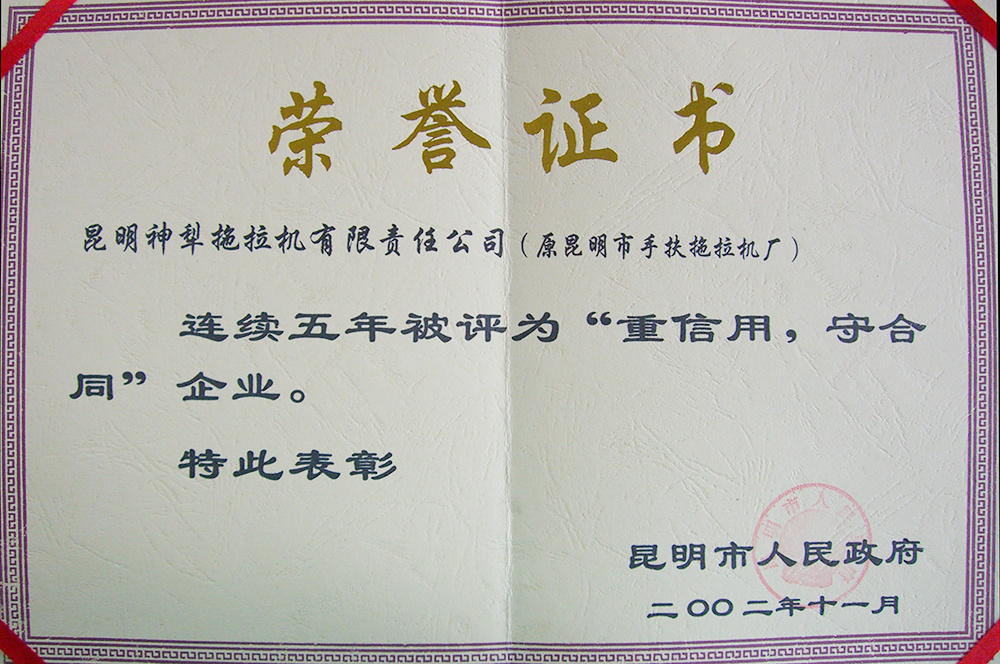 荣誉证书
昆明神犁拖拉机有限责任公司（原昆明市手扶拖拉机厂）
连续五年被评为“重信用，守合
同”企业。
特此表彰
昆明市人民政府
二〇〇二年十一月